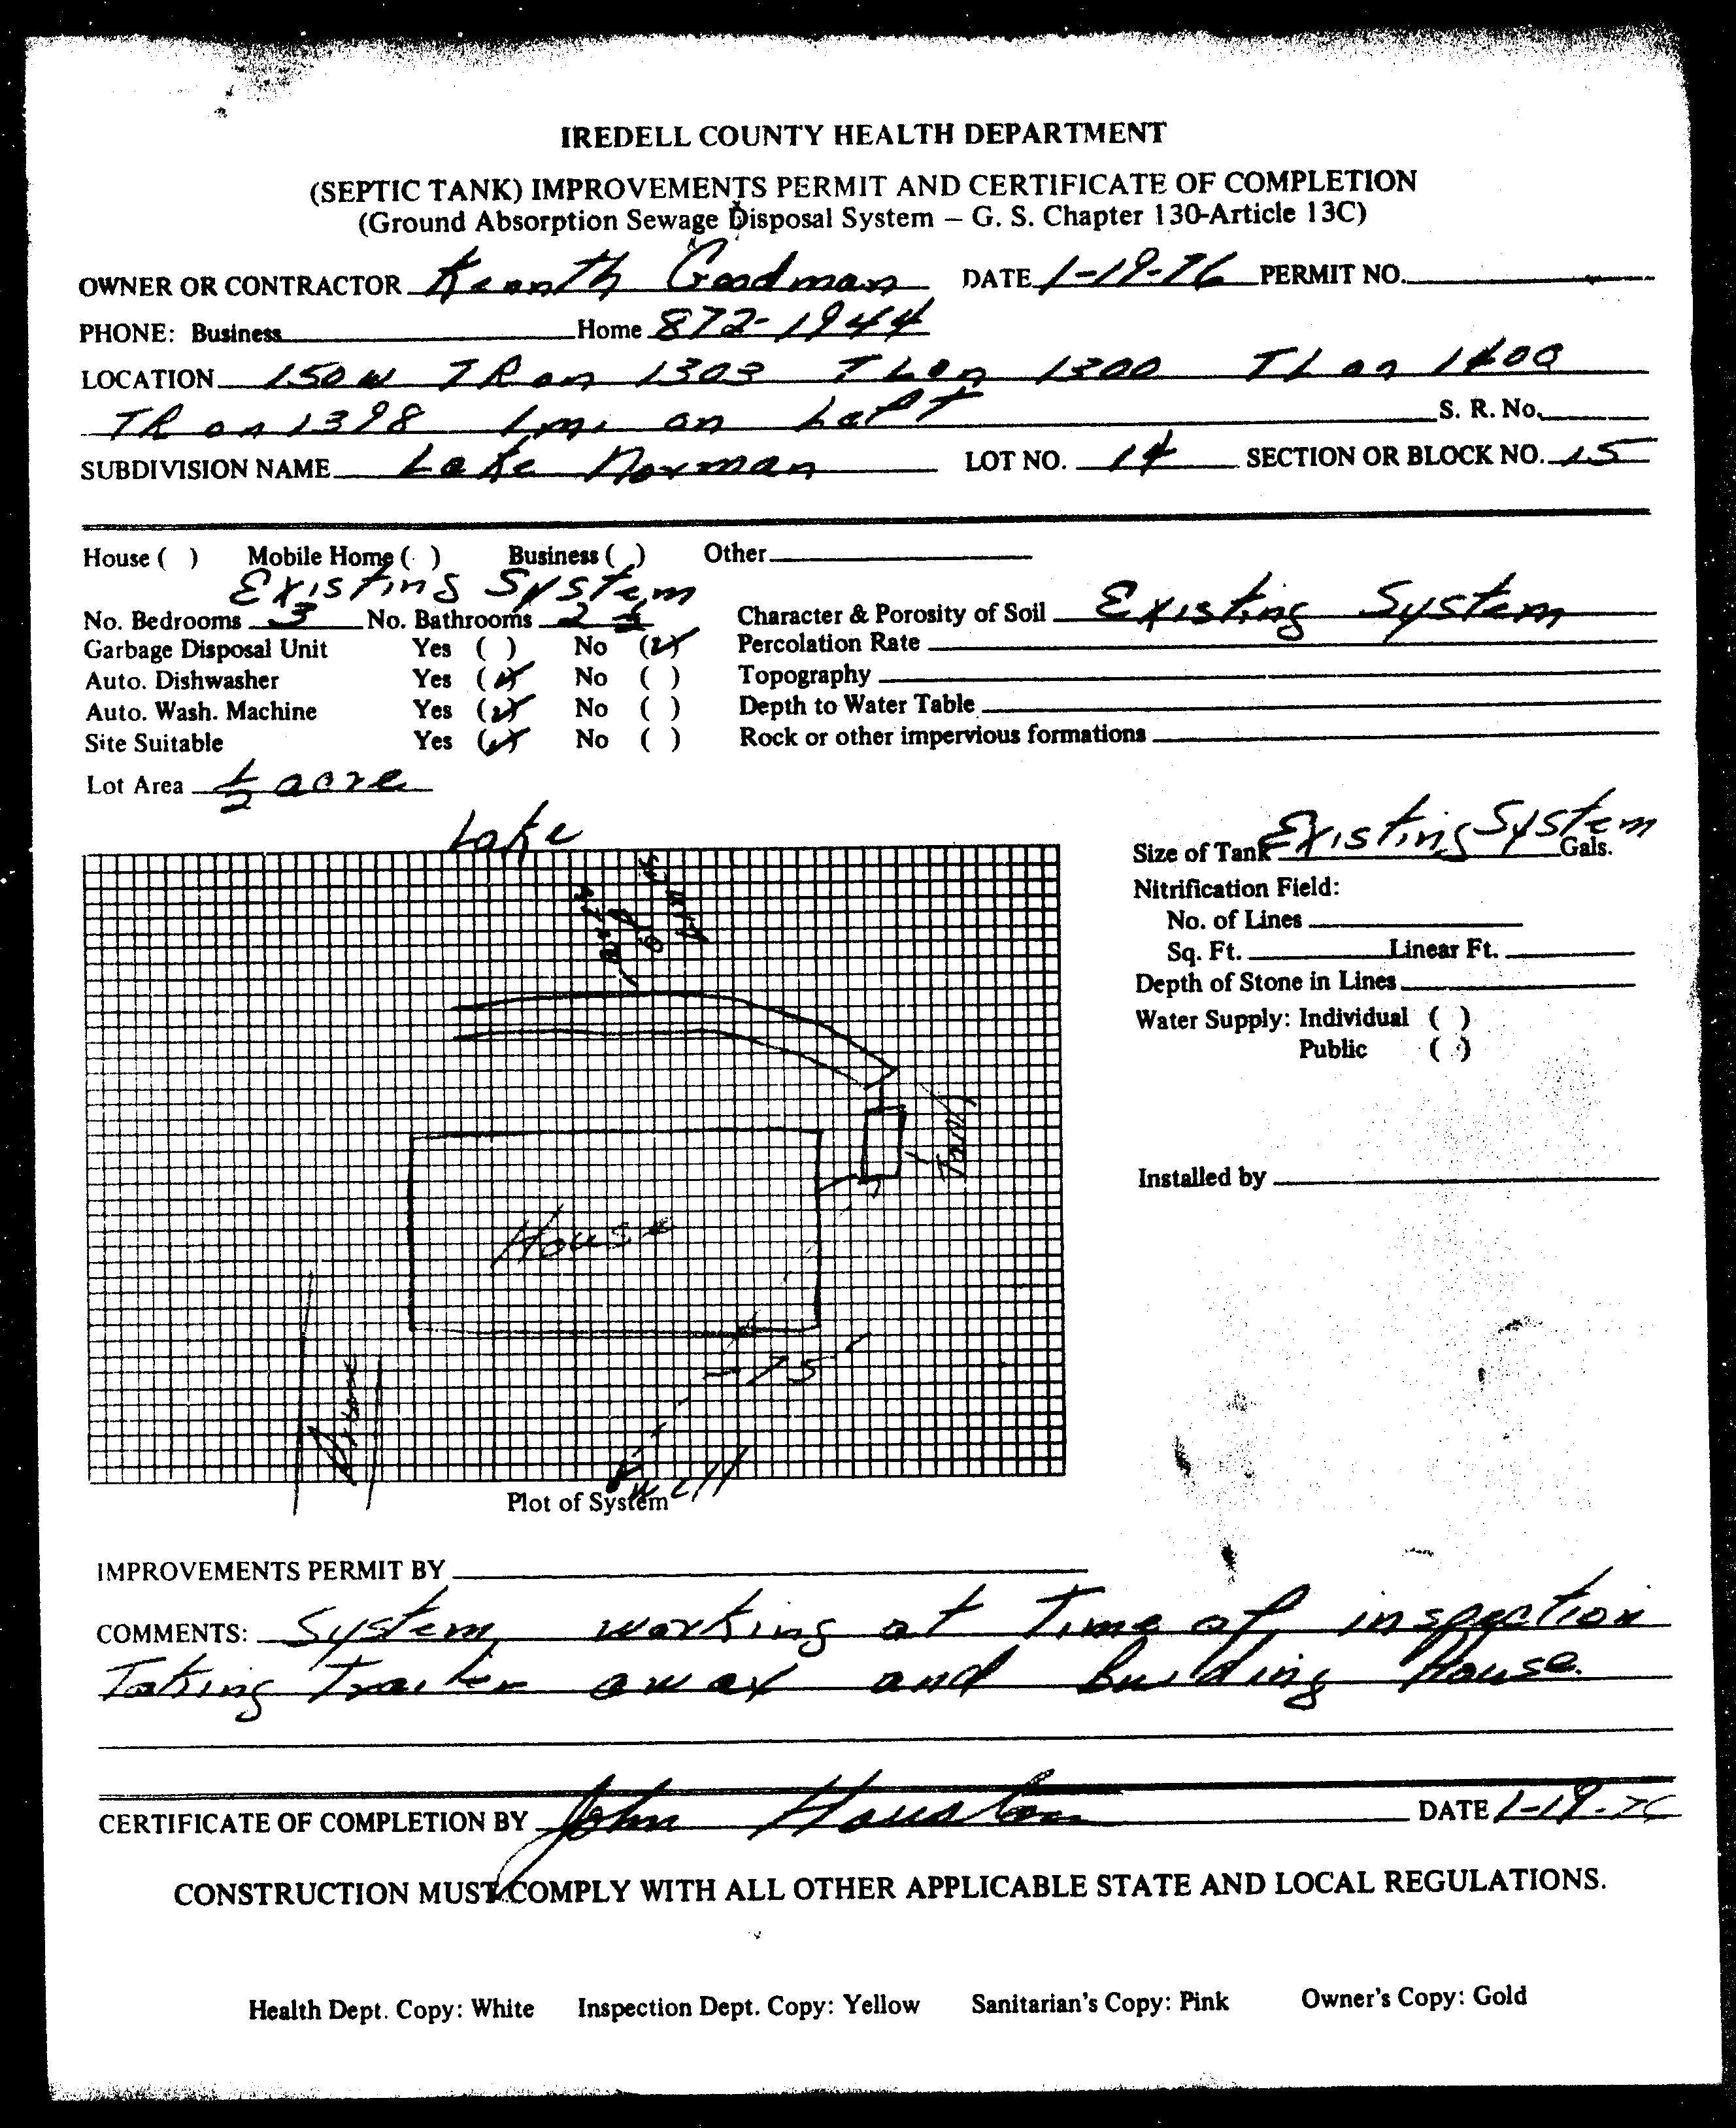 IREDELL COUNTY HEALTH DEPARTMENT
(SEPTIC TANK) IMPROVEMENTS PERMIT AND CERTIFICATE OF COMPLETION
(Ground Absorption Sewage Disposal System – G. S. Chapter 130-Article 13C)
OWNER OR CONTRACTOR Kenneth Goodman DATE 1-19-76 PERMIT NO.
PHONE: Business Home 872-1944
LOCATION 150 W TR on 1303 TL on 1300 TL on 1400
TR on 1398 1 mi on Left S. R. No.
SUBDIVISION NAME Lake Norman LOT NO. 14 SECTION OR BLOCK NO. 15
House ( ) Mobile Home ( ) Business ( ) Other
Existing System
No. Bedrooms 3 No. Bathrooms 2 Character & Porosity of Soil Existing System
Garbage Disposal Unit Yes ( ) No (✓) Percolation Rate
Auto. Dishwasher Yes (✓) No ( ) Topography
Auto. Wash. Machine Yes (✓) No ( ) Depth to Water Table
Site Suitable Yes (✓) No ( ) Rock or other impervious formations
Lot Area 1/2 acre
Lake
Size of Tank Existing System Gals.
Nitrification Field:
No. of Lines
Sq. Ft. Linear Ft.
Depth of Stone in Lines
Water Supply: Individual ( )
Public ( )
Tank
Installed by
House
75'
Drive
Well
Plot of System
IMPROVEMENTS PERMIT BY
COMMENTS: System working at Time of inspection
Taking Trailer away and building House.
CERTIFICATE OF COMPLETION BY John Houston DATE 1-19-76
CONSTRUCTION MUST COMPLY WITH ALL OTHER APPLICABLE STATE AND LOCAL REGULATIONS.
Health Dept. Copy: White Inspection Dept. Copy: Yellow Sanitarian's Copy: Pink Owner's Copy: Gold